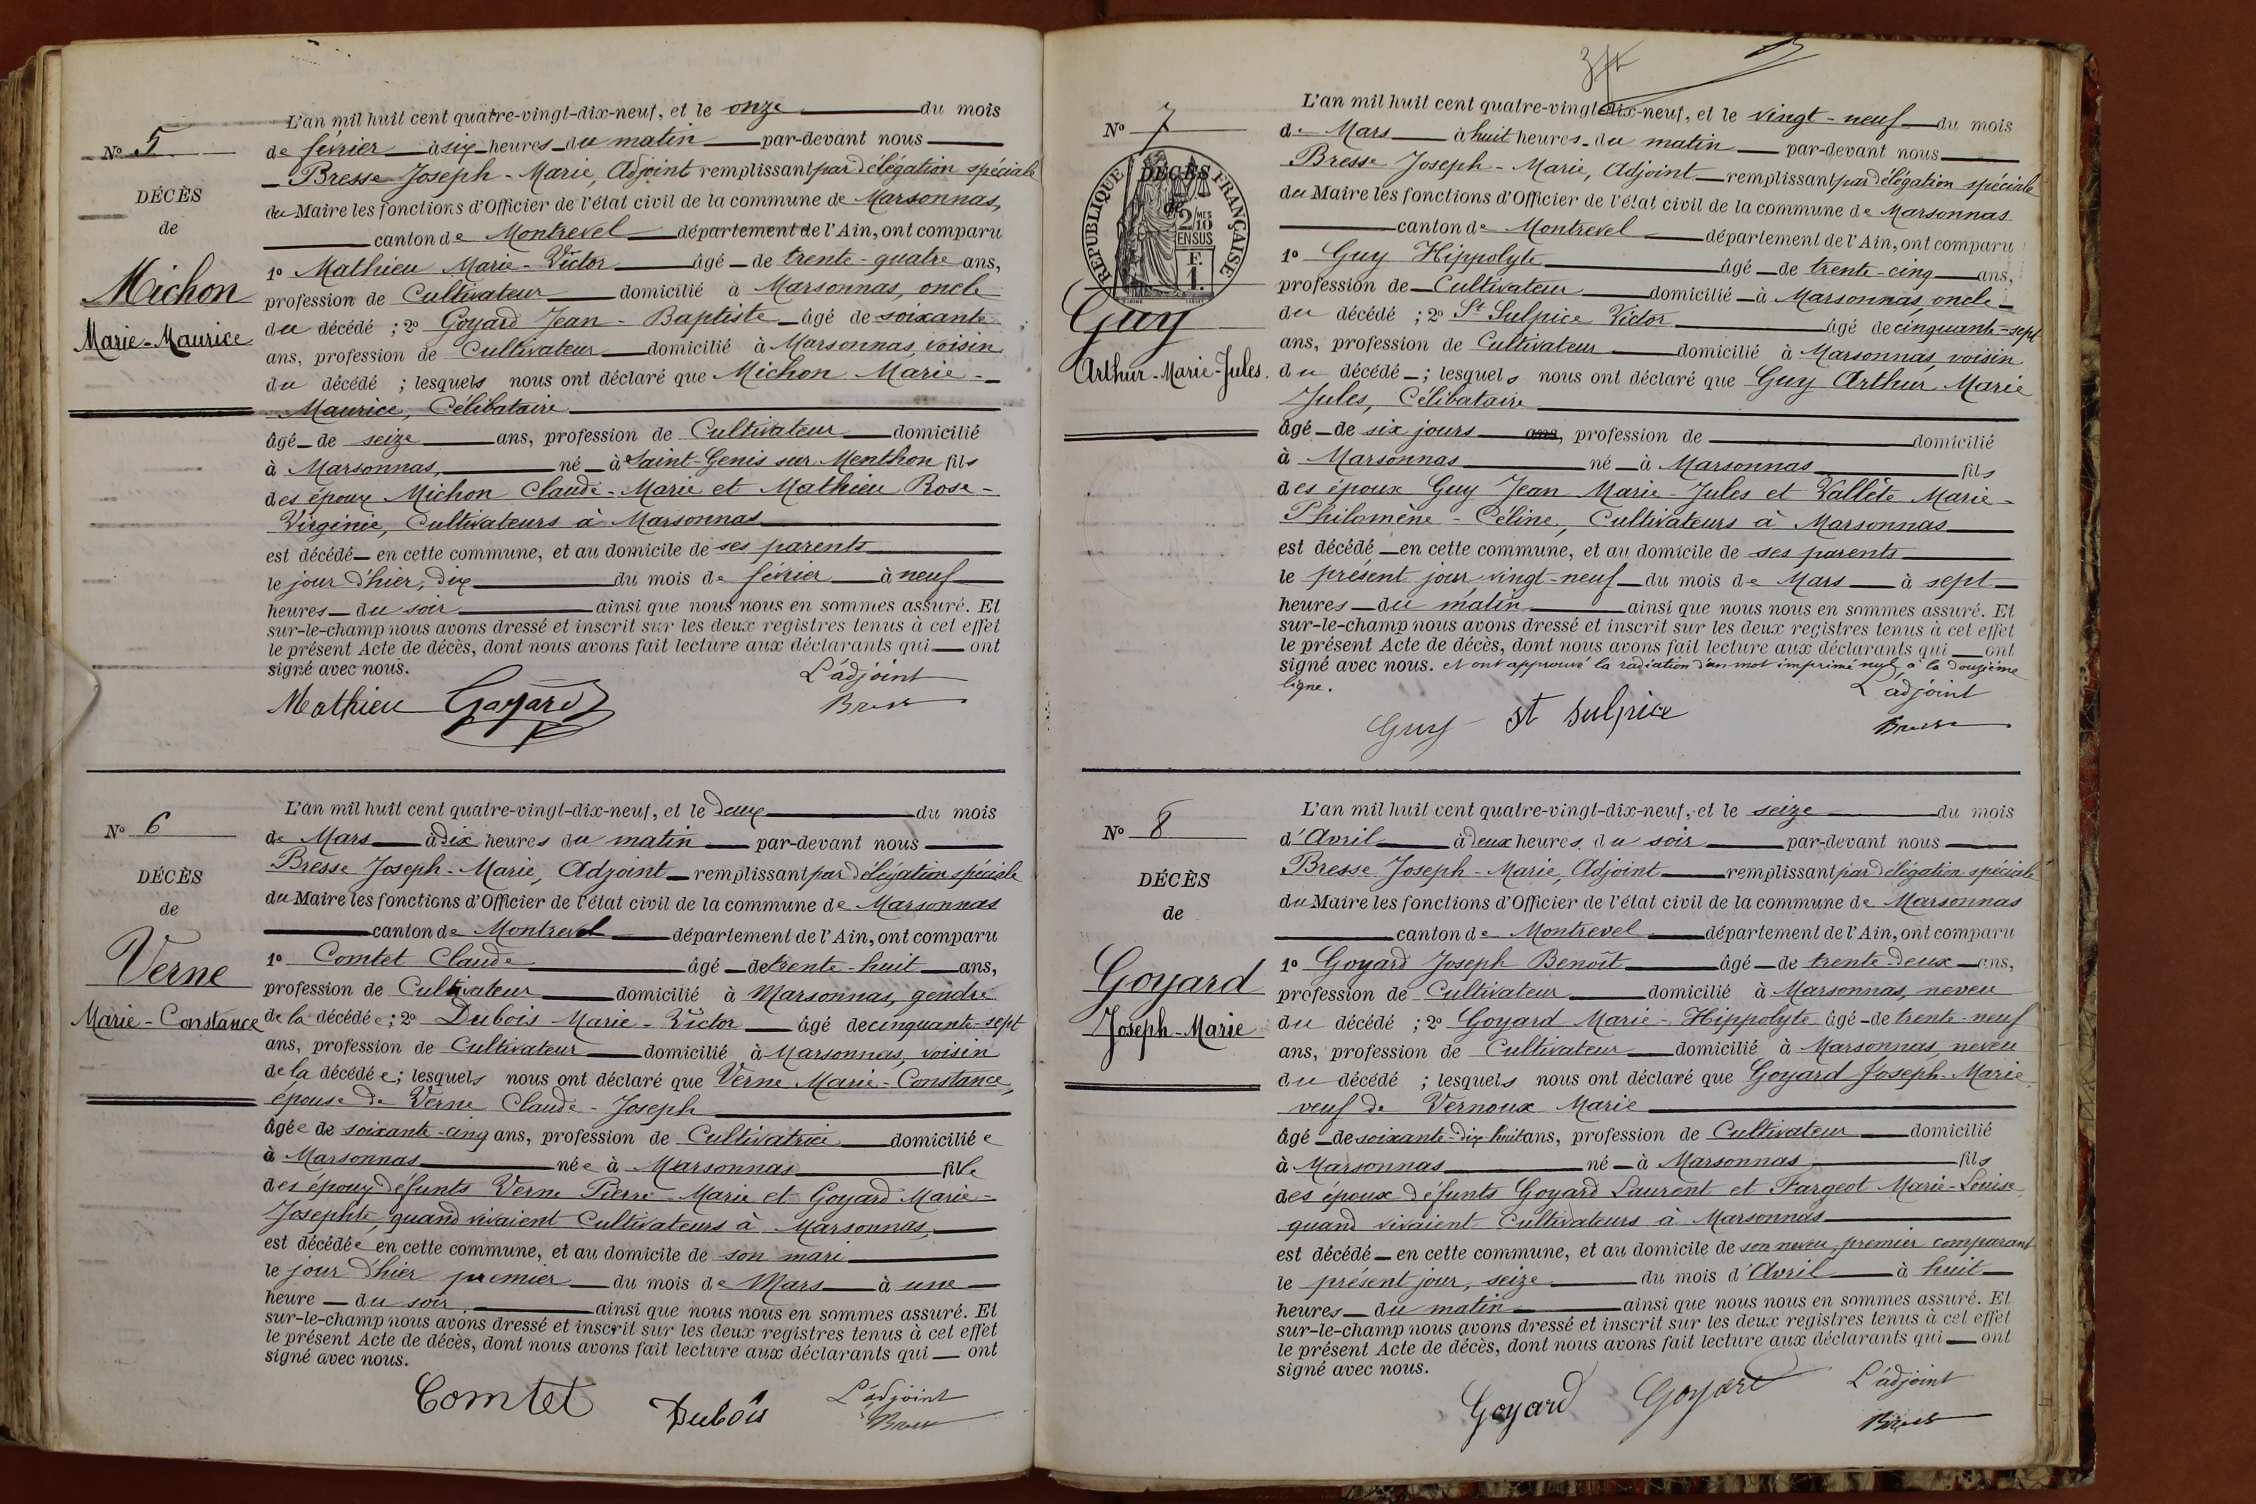 L'an mil huit cent quatre-vingt-dix-neuf, et le onze du mois
Nº 5
de février à six heures du matin par-devant nous
Bresse Joseph-Marie, Adjoint remplissant par délégation spéciale
DÉCÈS
du Maire les fonctions d'Officier de l'état civil de la commune de Marsonnas,
de
canton de Montrevel département de l'Ain, ont comparu
1º Mathieu Marie-Victor âgé de trente-quatre ans,
Michon
profession de Cultivateur domicilié à Marsonnas, oncle
du décédé ; 2º Goyard Jean-Baptiste âgé de soixante
Marie-Maurice
ans, profession de Cultivateur domicilié à Marsonnas, voisin
du décédé ; lesquels nous ont déclaré que Michon Marie-
Maurice, Célibataire
âgé de seize ans, profession de Cultivateur domicilié
à Marsonnas, né à Saint-Genis sur Menthon fils
des époux Michon Claude-Marie et Mathieu Rose-
Virginie, Cultivateurs à Marsonnas
est décédé en cette commune, et au domicile de ses parents
le jour d'hier, dix du mois de février à neuf
heures du soir ainsi que nous nous en sommes assuré. Et
sur-le-champ nous avons dressé et inscrit sur les deux registres tenus à cet effet
le présent Acte de décès, dont nous avons fait lecture aux déclarants qui ont
signé avec nous.
L'adjoint
Mathieu Goyard Bresse
L'an mil huit cent quatre-vingt-dix-neuf, et le deux du mois
Nº 6
de Mars à dix heures du matin par-devant nous
Bresse Joseph-Marie, Adjoint remplissant par délégation spéciale
DÉCÈS
du Maire les fonctions d'Officier de l'état civil de la commune de Marsonnas
de
canton de Montrevel département de l'Ain, ont comparu
1º Comtet Claude âgé de trente-huit ans,
Verne
profession de Cultivateur domicilié à Marsonnas, gendre
Marie-Constance
de la décédée ; 2º Dubois Marie-Victor âgé de cinquante-sept
ans, profession de Cultivateur domicilié à Marsonnas, voisin
de la décédée ; lesquels nous ont déclaré que Verne Marie-Constance,
épouse de Verne Claude-Joseph
âgée de soixante-cinq ans, profession de Cultivatrice domiciliée
à Marsonnas née à Marsonnas fille
des époux défunts Verne Pierre-Marie et Goyard Marie-
Josephte, quand vivaient Cultivateurs à Marsonnas,
est décédée en cette commune, et au domicile de son mari
le jour d'hier premier du mois de Mars à une
heure du soir ainsi que nous nous en sommes assuré. Et
sur-le-champ nous avons dressé et inscrit sur les deux registres tenus à cet effet
le présent Acte de décès, dont nous avons fait lecture aux déclarants qui ont
signé avec nous.
L'adjoint
Comtet Dubois Bresse
L'an mil huit cent quatre-vingt-dix-neuf, et le vingt-neuf du mois
Nº 7
de Mars à huit heures du matin par-devant nous
Bresse Joseph-Marie, Adjoint remplissant par délégation spéciale
DÉCÈS
de
RÉPUBLIQUE FRANÇAISE
2/10 EN SUS
F. 1.
du Maire les fonctions d'Officier de l'état civil de la commune de Marsonnas
canton de Montrevel département de l'Ain, ont comparu
1º Guy Hippolyte âgé de trente-cinq ans,
profession de Cultivateur domicilié à Marsonnas, oncle
Guy
du décédé ; 2º St Sulpice Victor âgé de cinquante-sept
ans, profession de Cultivateur domicilié à Marsonnas, voisin
Arthur-Marie-Jules.
du décédé ; lesquels nous ont déclaré que Guy Arthur Marie
Jules, Célibataire
âgé de six jours ans, profession de domicilié
à Marsonnas né à Marsonnas fils
des époux Guy Jean Marie-Jules et Vallète Marie-
Philomène-Céline, Cultivateurs à Marsonnas
est décédé en cette commune, et au domicile de ses parents
le présent jour, vingt-neuf du mois de Mars à sept
heures du matin ainsi que nous nous en sommes assuré. Et
sur-le-champ nous avons dressé et inscrit sur les deux registres tenus à cet effet
le présent Acte de décès, dont nous avons fait lecture aux déclarants qui ont
signé avec nous. et ont approuvé la radiation d'un mot imprimé nul, à la douzième
ligne.
L'adjoint
Guy St Sulpice Bresse
L'an mil huit cent quatre-vingt-dix-neuf, et le seize du mois
Nº 8
d'Avril à deux heures du soir par-devant nous
Bresse Joseph-Marie, Adjoint remplissant par délégation spéciale
DÉCÈS
du Maire les fonctions d'Officier de l'état civil de la commune de Marsonnas
de
canton de Montrevel département de l'Ain, ont comparu
1º Goyard Joseph Benoît âgé de trente-deux ans,
Goyard
profession de Cultivateur domicilié à Marsonnas, neveu
Joseph-Marie
du décédé ; 2º Goyard Marie-Hippolyte âgé de trente-neuf
ans, profession de Cultivateur domicilié à Marsonnas, neveu
du décédé ; lesquels nous ont déclaré que Goyard Joseph-Marie
veuf de Vernoux Marie
âgé de soixante-dix-huit ans, profession de Cultivateur domicilié
à Marsonnas né à Marsonnas fils
des époux défunts Goyard Laurent et Fargeot Marie-Louise,
quand vivaient Cultivateurs à Marsonnas
est décédé en cette commune, et au domicile de son neveu, premier comparant
le présent jour, seize du mois d'Avril à huit
heures du matin ainsi que nous nous en sommes assuré. Et
sur-le-champ nous avons dressé et inscrit sur les deux registres tenus à cet effet
le présent Acte de décès, dont nous avons fait lecture aux déclarants qui ont
signé avec nous.
L'adjoint
Goyard Goyard Bresse